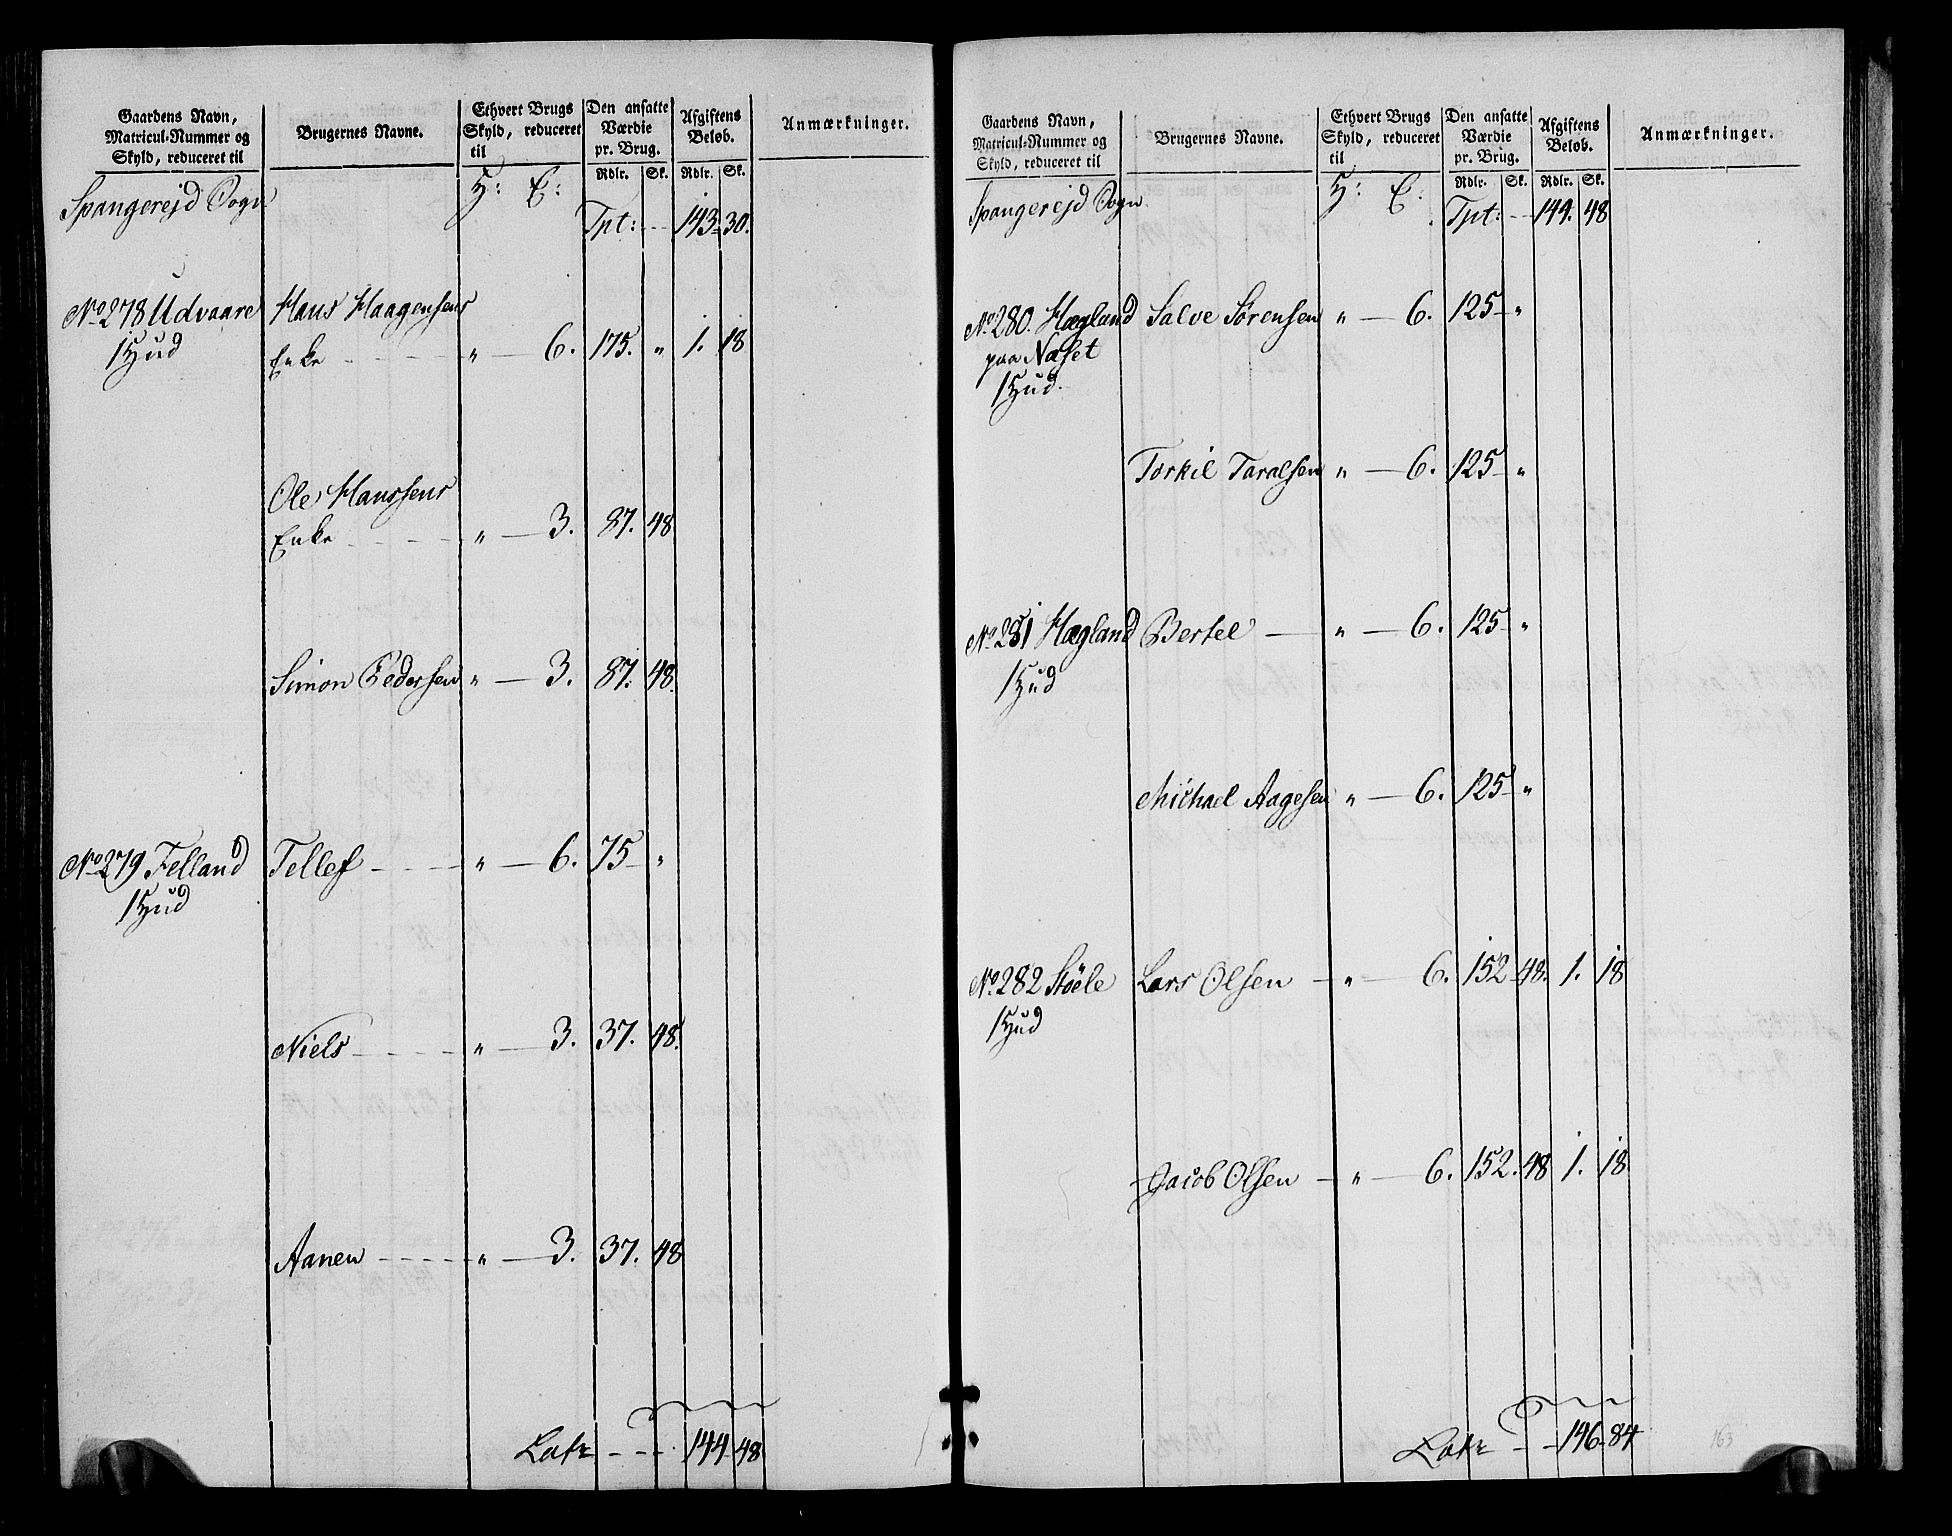 Gaardens Navn, Matricul-Nummer og Skyld, reduceret til | Brugernes Navne. | Ethvert Brugs Skyld, reduceret til | Den ansatte Værdie pr. Brug. | Afgiftens Beløb. | Anmærkninger.
Rdlr. Sk. Rdlr. Sk.
Spangerejd Sogn H: E: Tpt: 143 30.
No 278 Udvaare Hans Haagensens
1 Hud Enke " 6. 175. " 1. 18
Ole Hanssens
Enke " 3. 87. 48
Simon Pedersen " 3. 87. 48.
No 279 Felland Tellef " 6. 75 "
1 Hud
Niels " 3. 37. 48.
Aanen " 3. 37. 48
Latr 144 48
Gaardens Navn, Matricul-Nummer og Skyld, reduceret til | Brugernes Navne. | Ethvert Brugs Skyld, reduceret til | Den ansatte Værdie pr. Brug. | Afgiftens Beløb. | Anmærkninger.
Rdlr. Sk. Rdlr. Sk.
Spangerejd Sogn H: E: Tpt: 144. 48
No 280. Hægland Salve Sørensen " 6. 125 "
paa Næset
1 Hud.
Torkil Taralsen " 6. 125 "
No 281 Hægland Bertel " 6. 125 "
1 Hud
Michael Aagesen " 6. 125 "
No 282 Støele Lars Olsen " 6. 152 48. 1. 18
1 Hud
Jacob Olsen " 6. 152. 48 1. 18
Latr 146 84
163